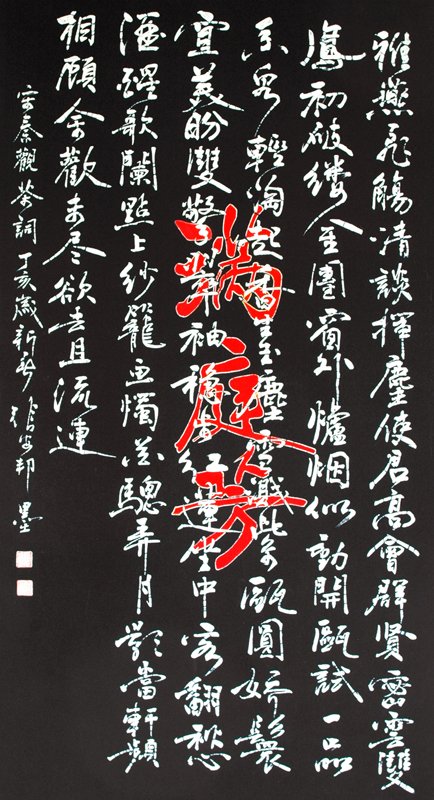 雅燕飛觴清談揮塵使君高會群賢密雲雙
鳳初破縷金團窗外爐烟似動開甌試一品
香泉輕淘起香生玉塵雪濺紫甌圓嬌鬟
宜美盼雙擎翠袖穩步紅蓮坐中客翻愁
酒醒歌闌點上紗籠画燭花驄弄月影當軒頻
相顧余歡未尽欲去且流連
宋秦觀茶詞丁亥歲新春邦墨
滿庭芳